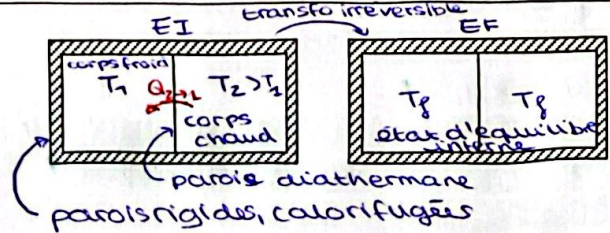 transfo irréversible
EI
EF
corps froid
T₁
Q₂→₁
T₂>T₁
corps
chaud
Tf
Tf
état d'équilibre
interne
parois diathermane
parois rigides, calorifugées